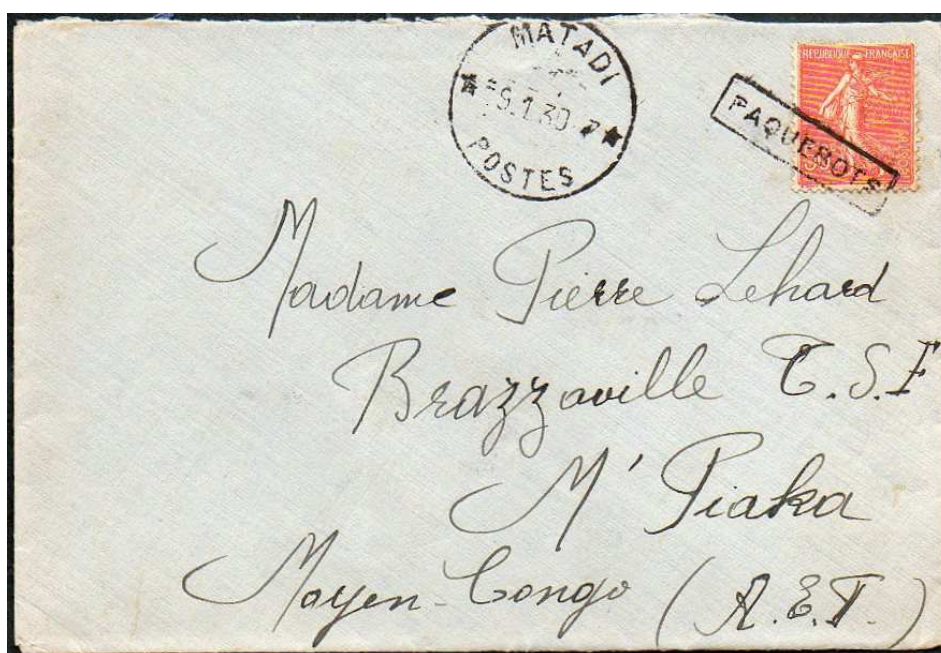 MATADI
-9.1.30-7
POSTES
REPUBLIQUE FRANÇAISE
PAQUEBOTS
Madame Pierre Lehard
Brazzaville T.S.F
M' Piaka
Moyen-Congo (A.E.F.)